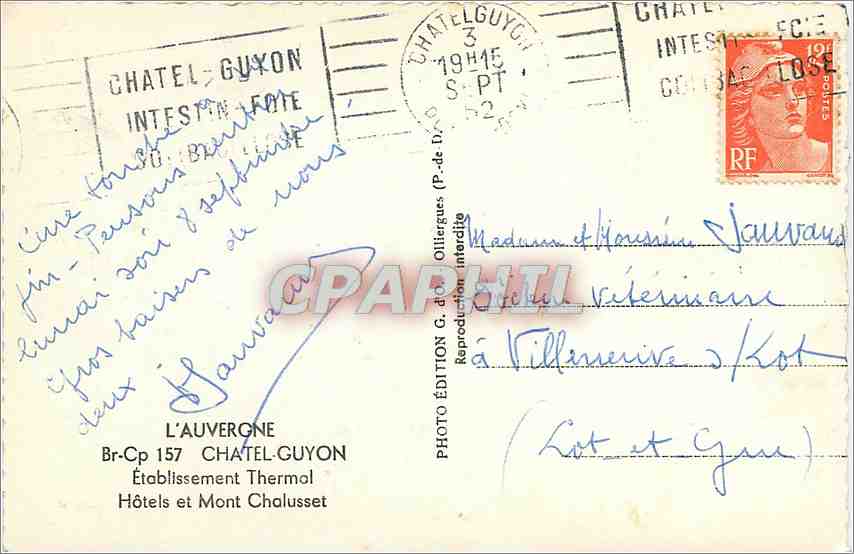 CHATEL-GUYON
INTESTIN-FOIE
COLIBACILLOSE
CHATELGUYON
3
19H15
SEPT
52
CHATEL
INTESTIN FOIE
COLIBACILLOSE
12F
POSTES
RF
Cure touche à sa
fin - Pensons rentrer
lundi soir 8 septembre
Gros baisers de nous
deux
Jauvard
L'AUVERGNE
Br-Cp 157 CHATEL-GUYON
Établissement Thermal
Hôtels et Mont Chalusset
PHOTO ÉDITION G. d'O., Olliergues (P.-de-D.)
Reproduction interdite
CPAPHIL
Madame et Monsieur Jauvard
Docteur Vétérinaire
à Villeneuve s/Lot
(Lot et Gne)